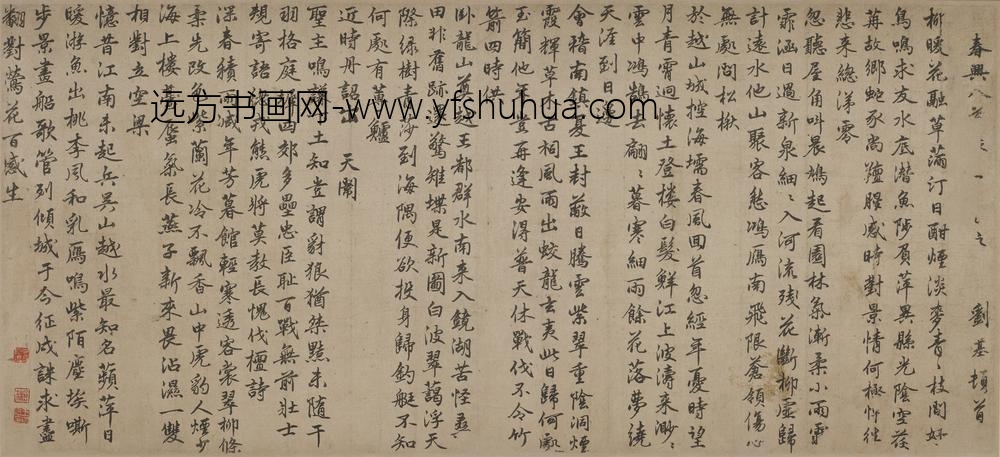 春興八首之一之 劉基頓首
柳暖花融草滿汀日酣煙淡麥青々枝間好
鳥鳴求友水底潛魚陟負萍異縣光陰空荏
苒故鄉蛇豕尚羶腥感時對景情何極忤往
悲來總涕零
忽聽屋角叫晨鳩起看園林氣漸柔小雨霏
霏涵日過新泉細々入河流殘花斷柳虛歸
計遠水他山聚客愁鴻雁南飛限蒼領傷心
無處問松楸
於越山城控海壖春風回首忽經年憂時望
月青霄迥懷土登樓白髮鮮江上波濤來渺々
雲中鴻鵠去翩々暮寒細雨餘花落夢繞
天涯到日邊
會稽南鎮夏王封蔽日騰雲紫翠重陰洞煙
霞輝草 古祠風雨出蛟龍玄夷此日歸何處
玉簡他年 再逢安得普天休戰伐不令竹
箭四時供
臥龍山 王都群水南來入鏡湖苦怪
田非舊跡 驚雉堞是新圖白波翠藹浮天
際綠樹青 沙到海隅便欲投身歸釣艇不知
何處有 鱸
近時丹詔出天闈
聖主鳴 土知豈謂豺狼猶桀黠未隨干
羽格庭 郊多壘忠臣恥百戰無前壯士
寄語 熊虎將莫教長愧伐檀詩
深春積 減年芳暮館輕寒透客裳翠柳條
柔先改色 蘭花冷不飄香山中虎豹人煙少
海上樓 蜃氣長燕子新來畏沾濕一雙
相對立空梁
憶昔江南未起兵吳山越水最知名蘋萍日
暖游魚出桃李風和乳雁鳴紫陌塵埃嘶
步景畫船歌管列傾城于今征戍誅求盡
翻對鶯花百感生
远方书画网-www.yfshuhua.com